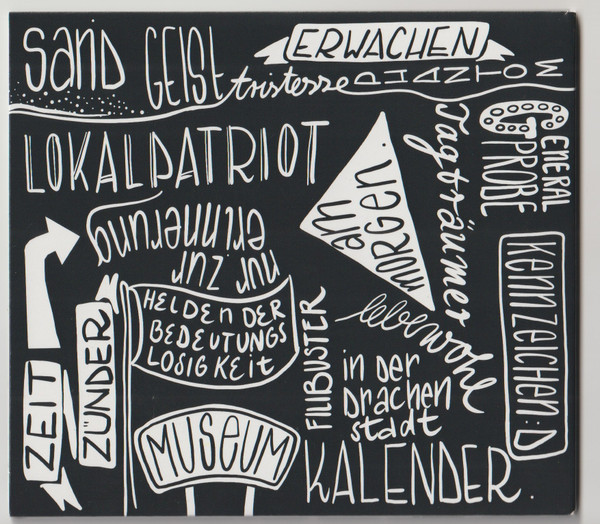 SAND
GEIST
tristesse
ERWACHEN
PHANTOM
LOKALPATRIOT
am
MORGEN.
Tagträumer
GENERAL
PROBE
nur zur
erinnerung
HELDEN DER
BEDEUTUNGS
LOSIGKEIT
ZEIT
ZÜNDER
FILIBUSTER
lebewohl
in der
Drachen
stadt
KENNZEICHEN:D
MUSEUM
KALENDER.